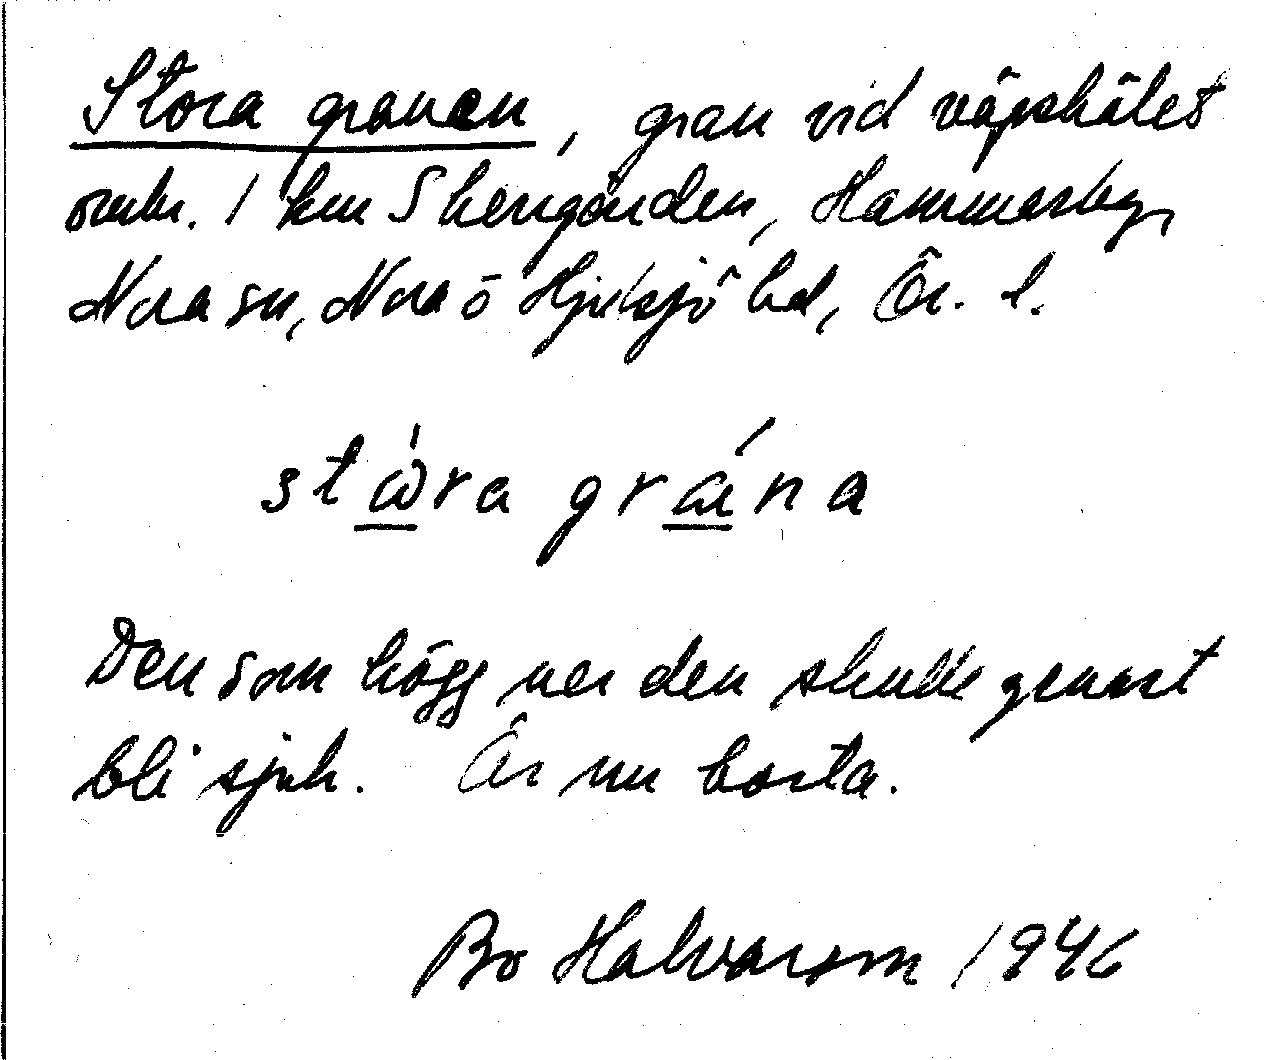 Stora granen, gran vid vägskälet
omkr. 1 km S herrgården, Hammarby,
Nora sn, Nora o Hjulsjö hd, Ör. l.
stωra grána
Den som högg ner den skulle genast
bli sjuk. Är nu borta.
Bo Halvarson 1946